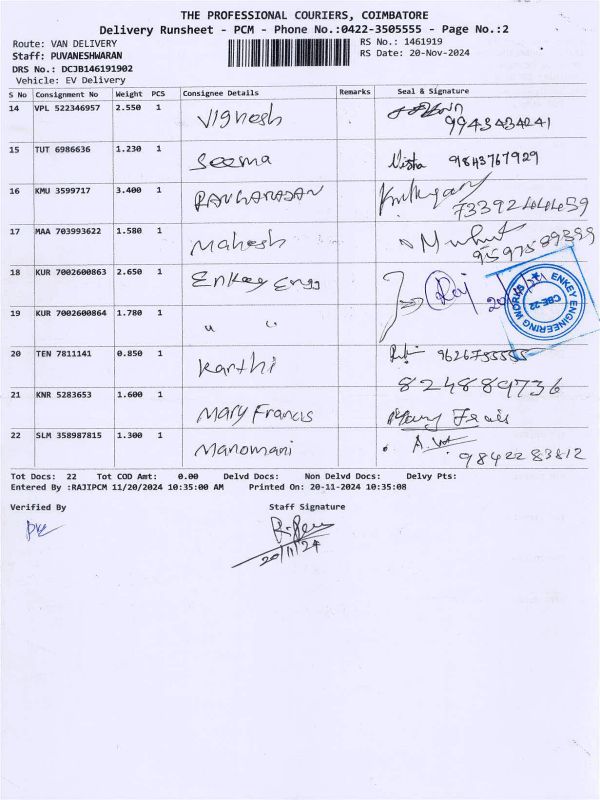 THE PROFESSIONAL COURIERS, COIMBATORE
Delivery Runsheet - PCM - Phone No.:0422-3505555 - Page No.:2
Route: VAN DELIVERY RS No.: 1461919
Staff: PUVANESHWARAN RS Date: 20-Nov-2024
DRS No.: DCJB146191902
Vehicle: EV Delivery
S No Consignment No Weight PCS Consignee Details Remarks Seal & Signature
14 VPL 522346957 2.550 1 Vignesh
9943434241
15 TUT 6986636 1.230 1 Seema Nisha 9843767929
16 KMU 3599717 3.400 1
17 MAA 703993622 1.580 1 Mahesh
9597589399
18 KUR 7002600863 2.650 1 Enkey Engg Raj
ENKEY ENGINEERING WORKS
CBE-22
19 KUR 7002600864 1.780 1 " "
20 TEN 7811141 0.850 1 Karthi 9626755555
8248899736
21 KNR 5283653 1.600 1 Mary Francis Mary
22 SLM 358987815 1.300 1 Manomani
9842283812
Tot Docs: 22 Tot COD Amt: 0.00 Delvd Docs: Non Delvd Docs: Delvy Pts:
Entered By :RAJIPCM 11/20/2024 10:35:00 AM Printed On: 20-11-2024 10:35:08
Verified By Staff Signature
20/11/24